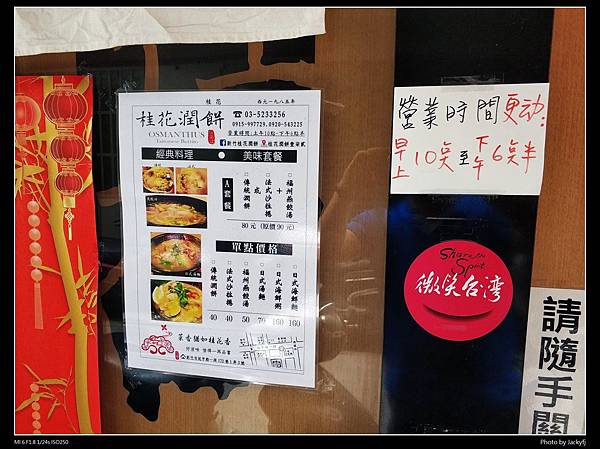 桂花 西元一九八五年
桂花潤餅
OSMANTHUS
Taiwanese Burrito
☎ 03-5233256
0915-997729, 0920-543225
營業時間:上午10點-下午6點半
新竹桂花潤餅
桂花潤餅童柒貳
經典料理 ● 美味套餐
A套餐
□傳統潤餅
或
□法式沙拉捲
+
□福州燕餃湯
80元 (原價90元)
單點價格
□傳統潤餅 40
□法式沙拉捲 40
□福州燕餃湯 50
□日式湯麵 70
□日式海鮮粥 160
□日式海鮮麵 160
菜香猶如桂花香
營業時間更动:
早上10点至下午6点半
Share the
Spot
微笑台灣
請隨手關
MI 6 F1.8 1/24s ISO250
Photo by Jackyfj